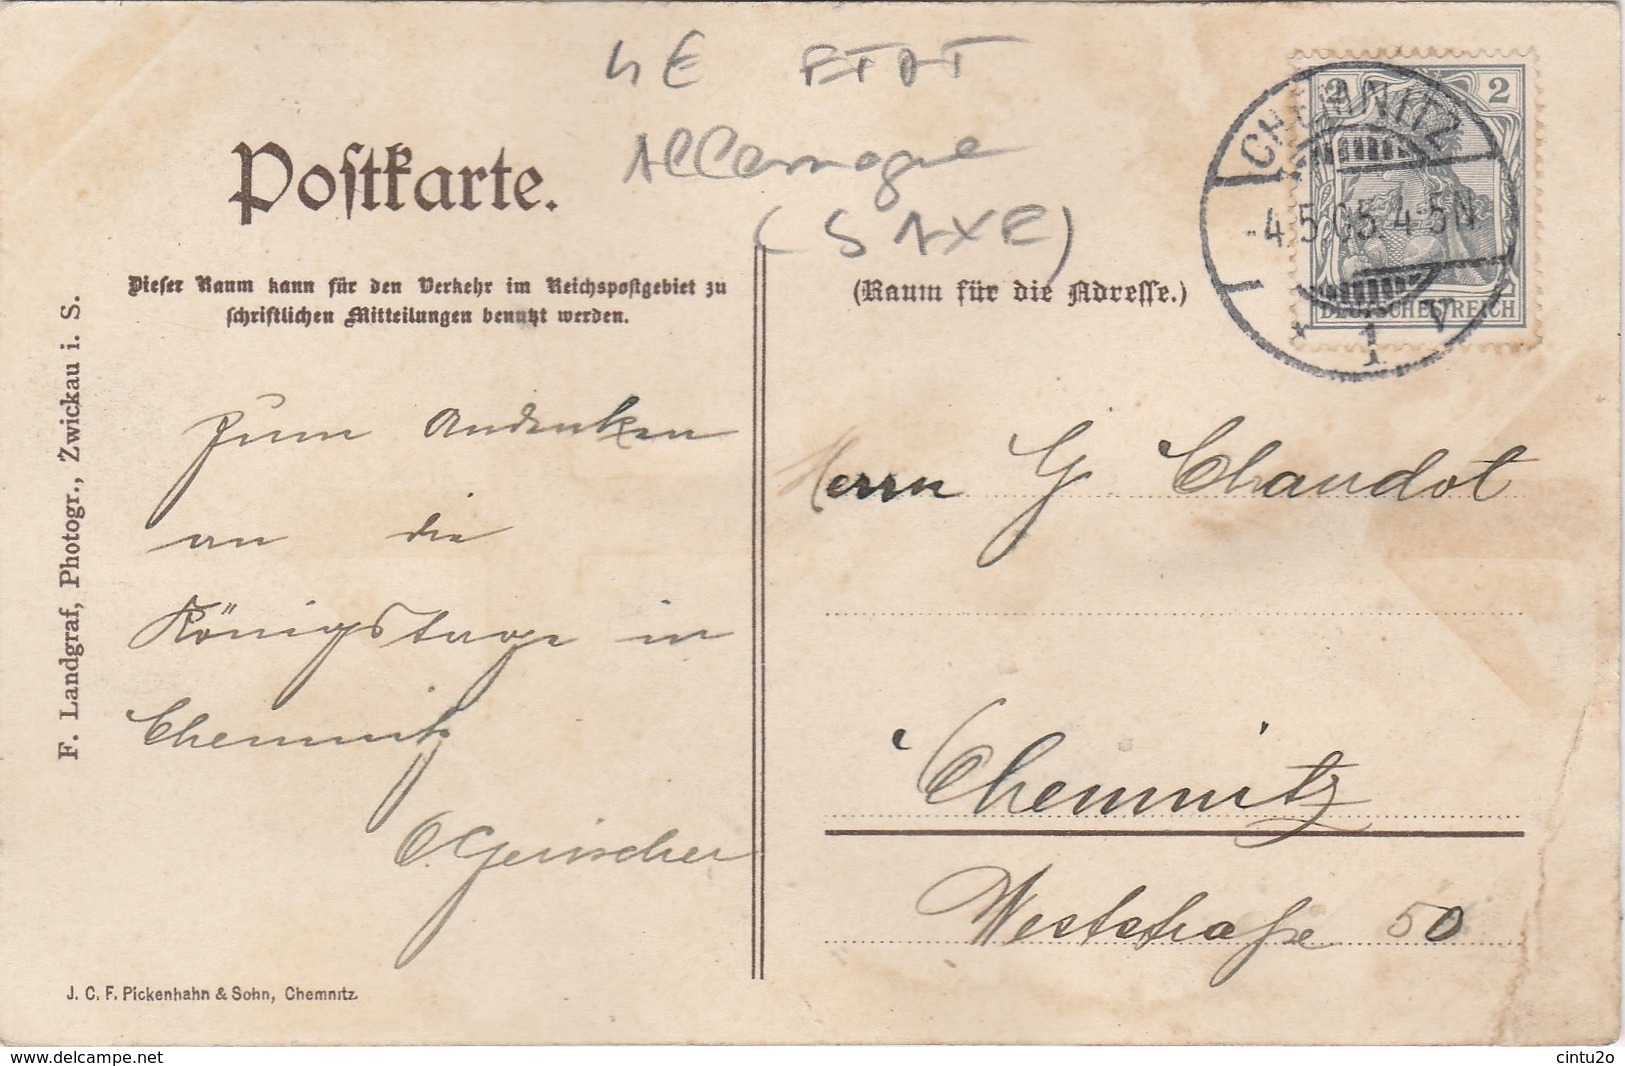 4E ETAT
Allemagne
(SAXE)
Postkarte.
Dieser Raum kann für den Verkehr im Reichspostgebiet zu
schriftlichen Mitteilungen benutzt werden.
(Raum für die Adresse.)
2 2
DEUTSCHES REICH
CHEMNITZ
-4.5.05.4-5N
* 1 V
F. Landgraf, Photogr., Zwickau i. S.
Zum Andenken
an die
Königstage in
Chemnitz
O. Gerischer
Herrn G Chaudot
Chemnitz
Weststraße 50
J. C. F. Pickenhahn & Sohn, Chemnitz
www.delcampe.net
cintu2o